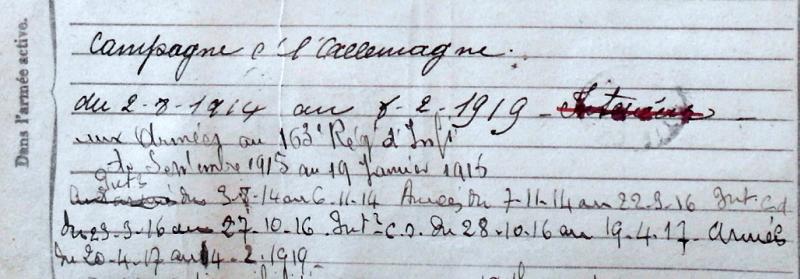 Dans l'armée active.
Campagne c/ l'Allemagne.
du 2-8-1914 au 8-2-1919
aux Armées au 163e Rég d'Infie
de Septembre 1915 au 19 Janvier 1915
Intr
du 3-8-14 au 6-11-14 Armées du 7-11-14 au 22-3-16 Intr c.d.
du 23-3-16 au 27-10-16 Intr c.d. du 28-10-16 au 19-4-17 Armées
du 20-4-17 au 14-2-1919